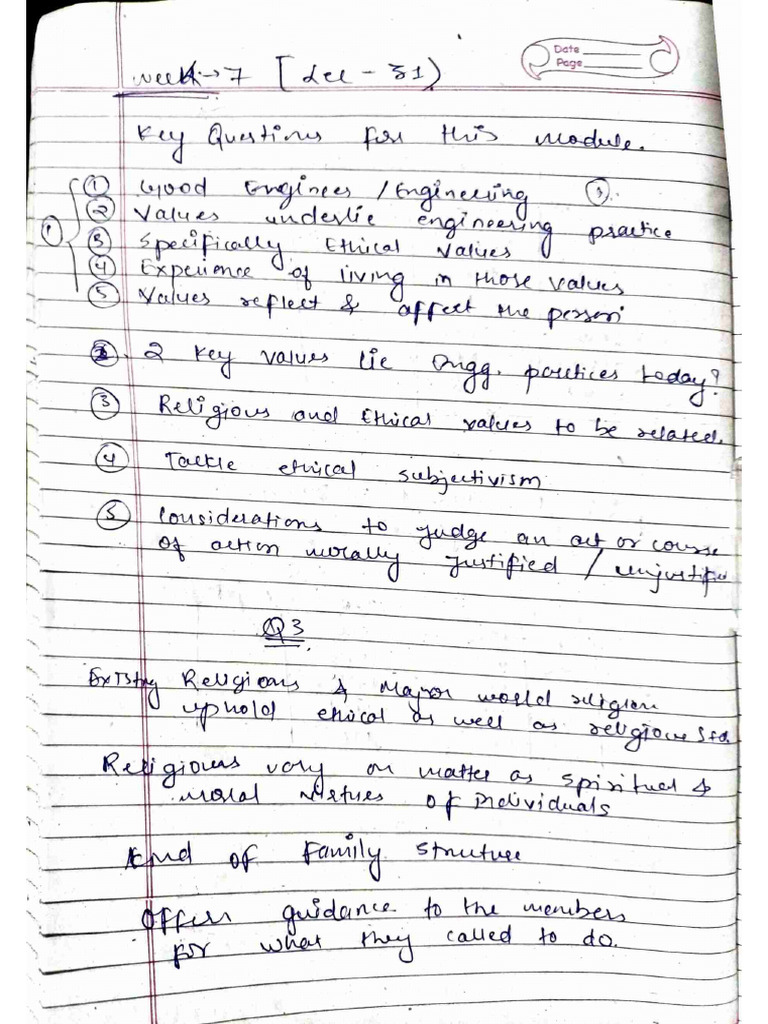 Date
Page
Week → 7 [Lec - 31)
Key Questions for this module.
① Good Engineer / Engineering ①.
② Values underlie engineering practice
① ③ Specifically Ethical Values
④ Experience of living in those values
⑤ Values reflect & affect the person
②. 2 Key values lie Engg. practices today?
③ Religious and Ethical values to be related.
④ Tackle ethical subjectivism
⑤ Considerations to judge an act or course
of action morally justified /
Q3
Existing Religions & Major world religion
uphold ethical as well as religious
Religious vary on matter as spiritual &
moral virtues of individuals
Kind of Family structure
Offers guidance to the members
for what they called to do.